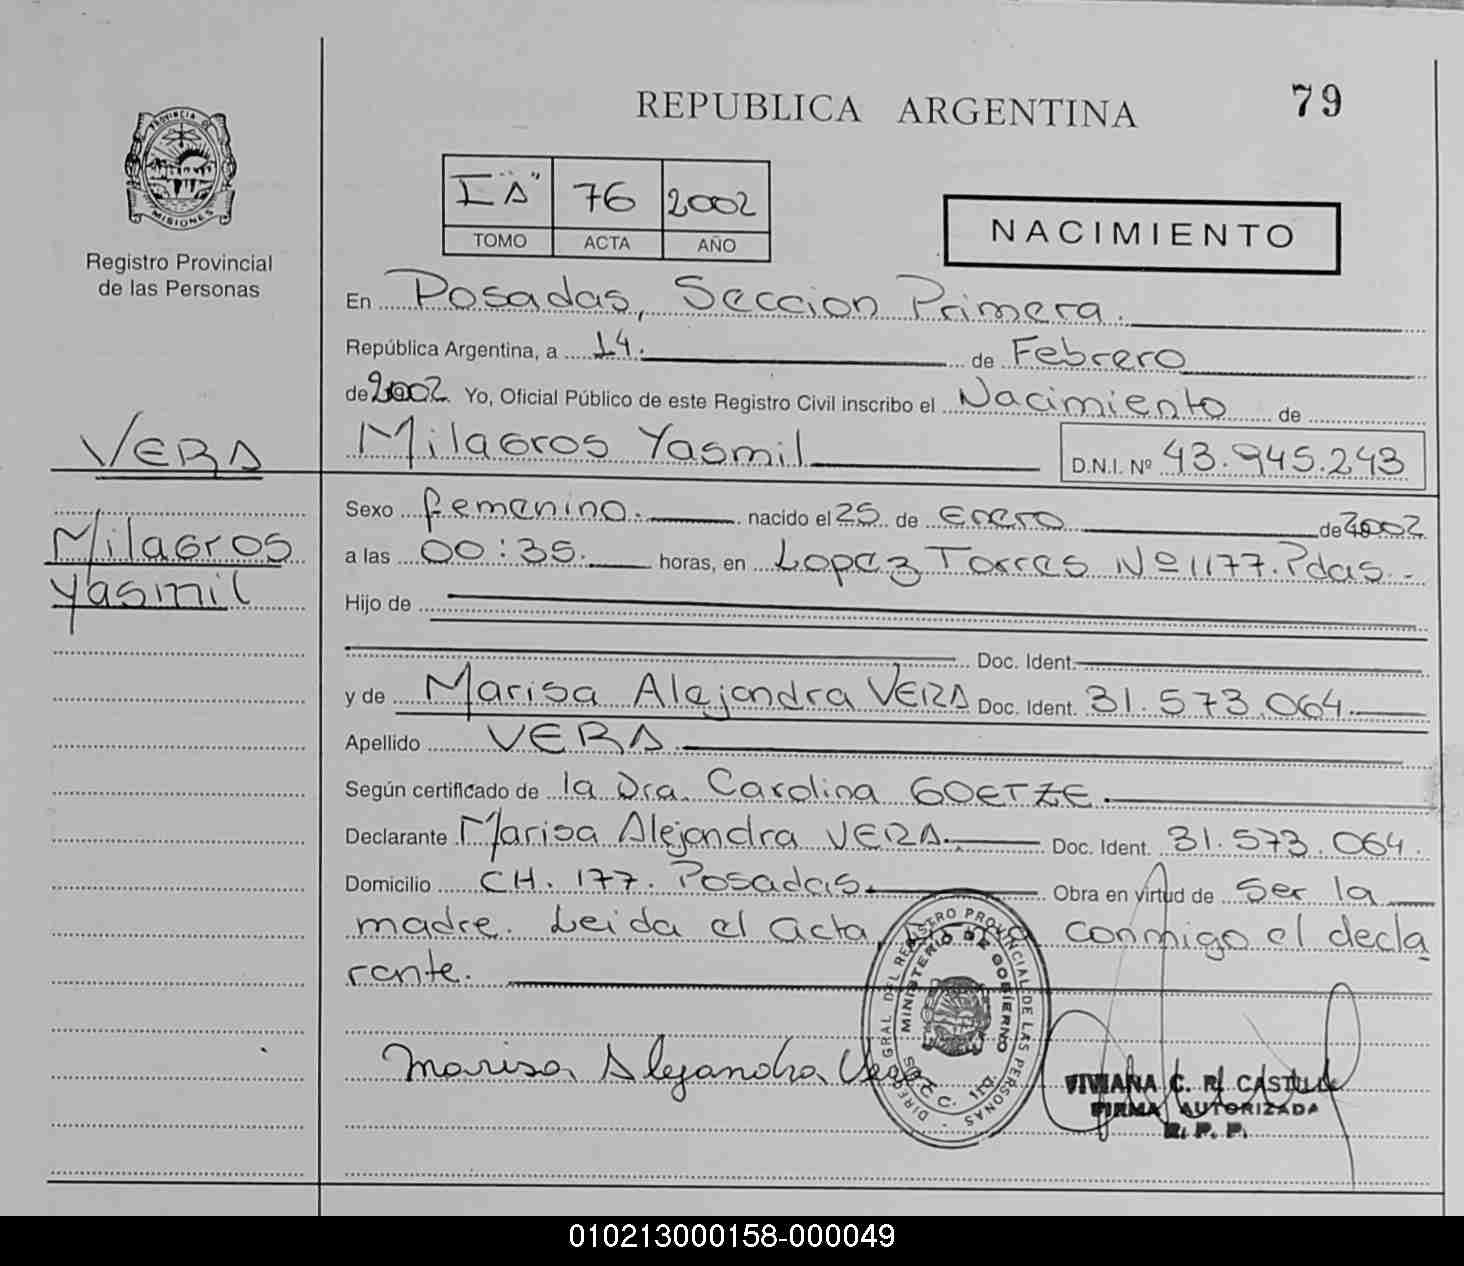 REPUBLICA ARGENTINA
79
PROVINCIA DE
MISIONES
Registro Provincial
de las Personas
I "A" 76 2002
TOMO ACTA AÑO
NACIMIENTO
En Posadas, Seccion Primera.
República Argentina, a 14. de Febrero
de 2002 Yo, Oficial Público de este Registro Civil inscribo el Nacimiento de
Milagros Yasmil D.N.I. Nº 43.945.243
VERA
Milagros
Yasmil
Sexo femenino. nacido el 25 de Enero de 2002
a las 00:35. horas, en Lopez Torres Nº 1177. Pdas.-
Hijo de
Doc. Ident.
y de Marisa Alejandra VERA Doc. Ident. 31.573.064.
Apellido VERA
Según certificado de la Dra. Carolina GOETZE.
Declarante Marisa Alejandra VERA. Doc. Ident. 31.573.064.
Domicilio CH. 177. Posadas. Obra en virtud de Ser la
madre. Leida el acta, conmigo el decla
rante.
Marisa Alejandra Vera
DIREC. GRAL. DEL REGISTRO PROVINCIAL DE LAS PERSONAS
MINISTERIO DE GOBIERNO
VIVIANA C. R. CASTILLO
FIRMA AUTORIZADA
R. P. P.
010213000158-000049